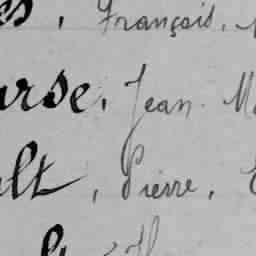 es, François,
urse, Jean M
ult, Pierre,